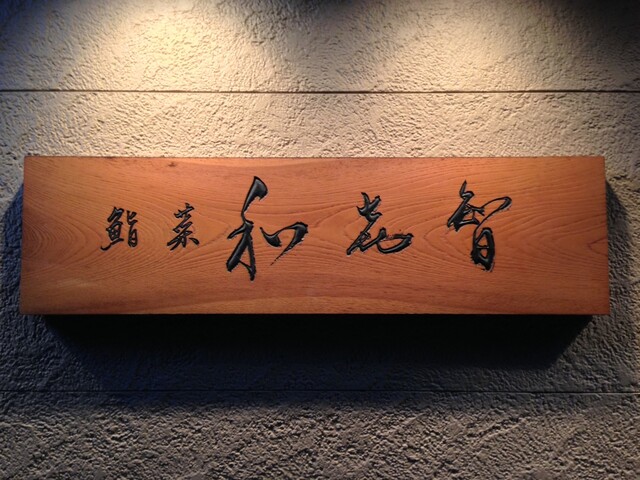 鮨菜 和喜智